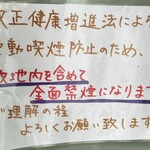 改正健康増進法による
受動喫煙防止のため、
敷地内を含めて
全面禁煙になります
ご理解の程
よろしくお願い致します